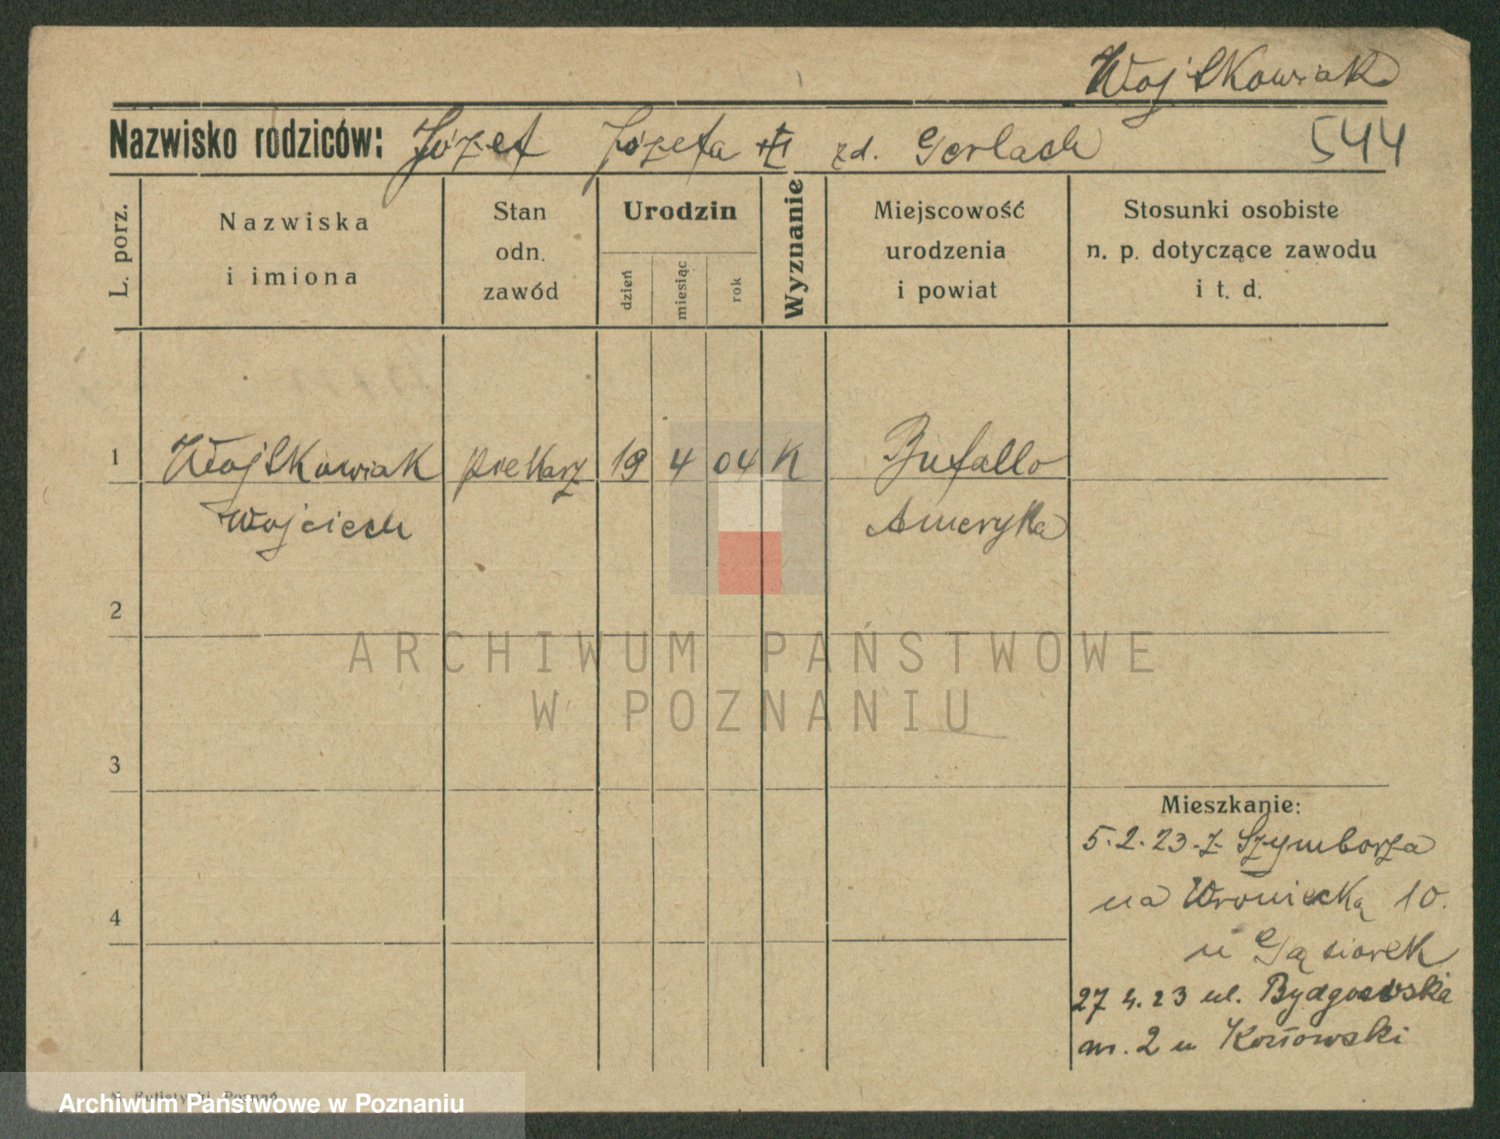 Wojtkowiak
Nazwisko rodziców: Józef Józefa zd. Gerlach 544
L. porz.
Nazwiska
i imiona
Stan
odn.
zawód
Urodzin
dzień
miesiąc
rok
Wyznanie
Miejscowość
urodzenia
i powiat
Stosunki osobiste
n. p. dotyczące zawodu
i t. d.
1 Wojtkowiak piekarz 19 4 04 K Bufallo
Wojciech Ameryka
2
ARCHIWUM PAŃSTWOWE
W POZNANIU
3
Mieszkanie:
5.2.23. z Szymborza
na Wroniecką 10.
u Gąsiorek
4
27 4.23 ul. Bydgoska
m. 2 u
Poznań
Archiwum Państwowe w Poznaniu